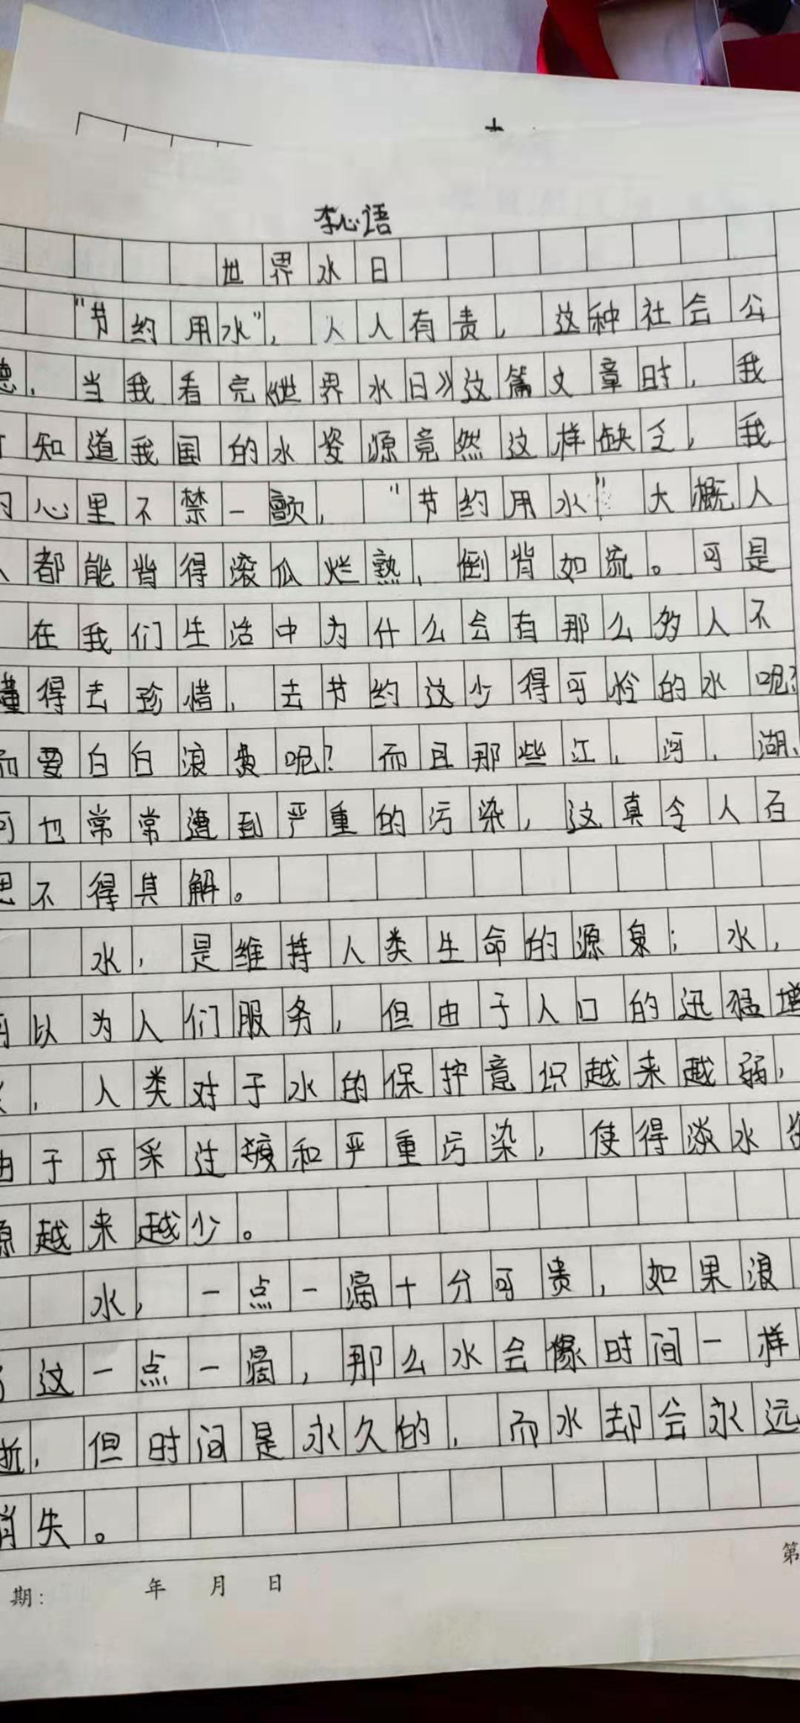 李心语
世界水日
“节约用水”，人人有责，这种社会公
德，当我看完《世界水日》这篇文章时，我
知道我国的水资源竟然这样缺乏，我
的心里不禁一颤，“节约用水”大概人
人都能背得滚瓜烂熟，倒背如流。可是
在我们生活中为什么会有那么多人不
懂得去珍惜，去节约这少得可怜的水呢？
而要白白浪费呢？而且那些江，河，湖、
可也常常遭到严重的污染，这真令人百
思不得其解。
水，是维持人类生命的源泉；水，
可以为人们服务，但由于人口的迅猛增
长，人类对于水的保护意识越来越弱，
由于开采过度和严重污染，使得淡水资
源越来越少。
水，一点一滴十分可贵，如果浪
了这一点一滴，那么水会像时间一样
逝，但时间是永久的，而水却会永远
消失。
期：　年　月　日
第